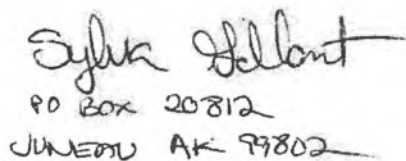 Sylvia Gillant
PO BOX 20812
JUNEAU AK 99802